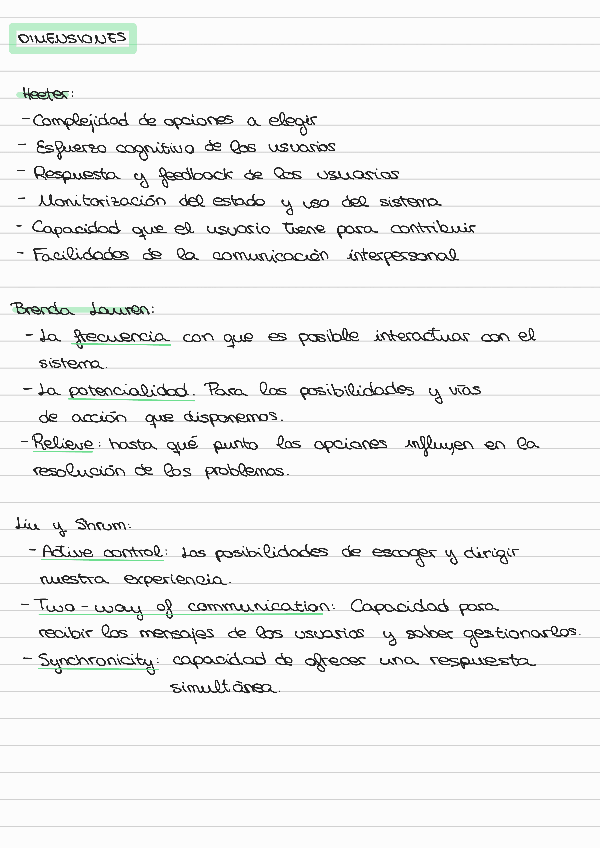 DIMENSIONES
Heeter:
- Complejidad de opciones a elegir
- Esfuerzo cognitivo de los usuarios
- Respuesta y feedback de los usuarios
- Monitorización del estado y uso del sistema
- Capacidad que el usuario tiene para contribuir
- Facilidades de la comunicación interpersonal
Brenda Lauren:
- La frecuencia con que es posible interactuar con el
sistema.
- La potencialidad. Para las posibilidades y vías
de acción que disponemos.
- Relieve: hasta qué punto las opciones influyen en la
resolución de los problemas.
Liu y Shrum:
- Active control: Las posibilidades de escoger y dirigir
nuestra experiencia.
- Two-way of communication: Capacidad para
recibir los mensajes de los usuarios y saber gestionarlos.
- Synchronicity: capacidad de ofrecer una respuesta
simultánea.